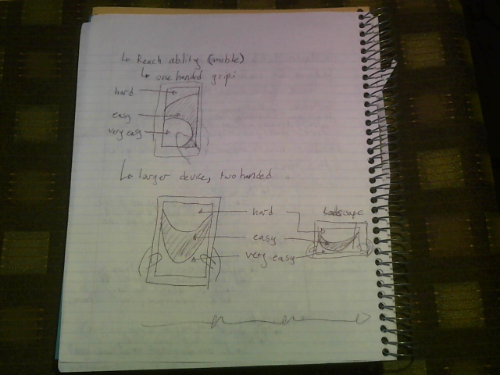 ↳ Reach ability (mobile)
↳ one handed grip:
hard
easy
very easy
↳ larger device, two handed
hard
landscape
easy
very easy